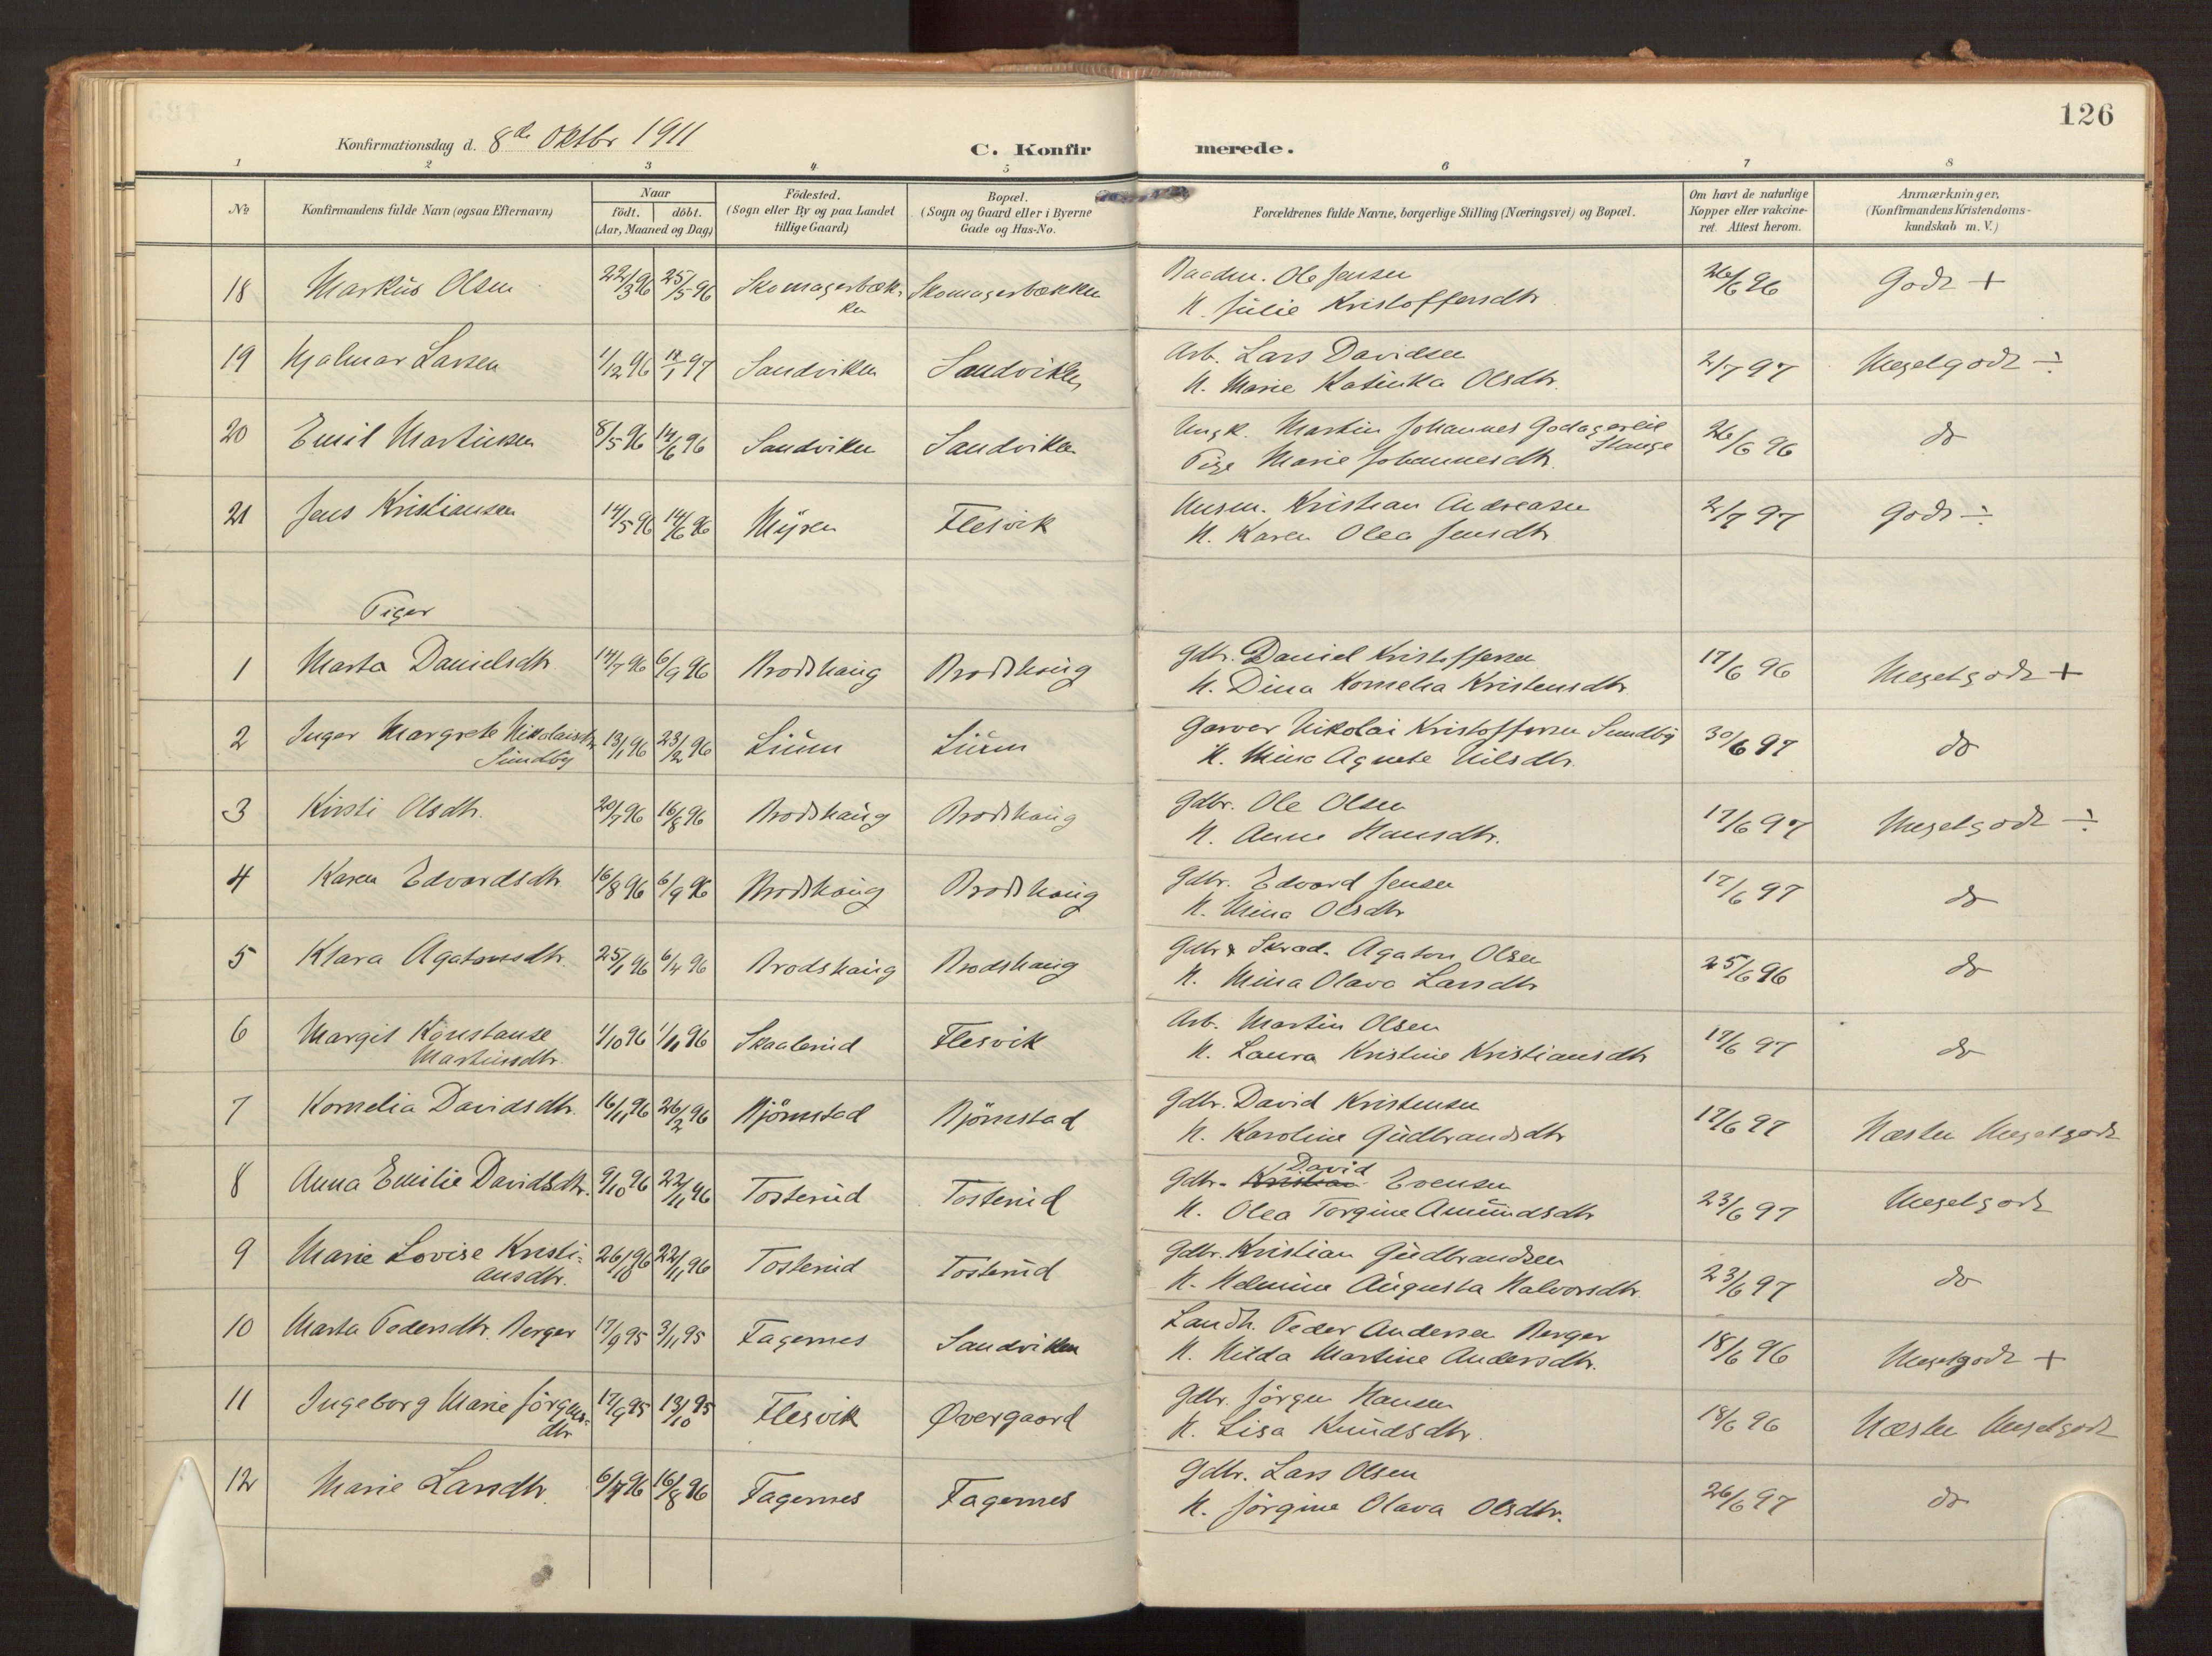 126
Konfirmationsdag d. 8de Oktbr 1911
C. Konfirmerede.
1 2 3 4 5 6 7 8
No
Konfirmandens fulde Navn (ogsaa Efternavn)
Naar
født. døbt.
(Aar, Maaned og Dag)
Födested.
(Sogn eller By og paa Landet
tillige Gaard)
Bopæl.
(Sogn og Gaard eller i Byerne
Gade og Hus-No.
Forældrenes fulde Navne, borgerlige Stilling (Næringsvei) og Bopæl.
Om havt de naturlige
Kopper eller vakcine-
ret. Attest herom.
Anmærkninger.
(Konfirmandens Kristendoms-
kundskab m. V.)
18 Markus Olsen 22/3 96 25/5 96 Skomagerbæk- Skomagerbækken Baadm. Ole Jensen 26/6 96 Godt +
ken H. Julie Kristoffersdtr
19 Hjalmar Larsen 1/12 96 17/1 97 Sandviken Sandviken Arb. Lars Davidsen 2/7 97 Megetgodt ÷
H. Marie Katinka Olsdtr.
20 Emil Martinsen 8/5 96 14/6 96 Sandviken Sandviken Ungk. Martin Johannes Godagereie 26/6 96 do
Stange
Pige Marie Johannesdtr.
21 Jens Kristiansen 14/5 96 14/6 96 Myren Flesvik Husm. Kristian Andreasen 2/7 97 Godt ÷
H. Karen Olea Jensdtr
Piger
1 Marta Danielsdtr 14/7 96 6/9 96 Brodshaug Brodshaug Gdbr. Daniel Kristoffersen 17/6 96 Megetgodt +
H. Dina Kornelia Kristensdtr.
2 Inger Margrete Nikolaisdtr 13/1 96 23/2 96 Lium Lium Garver Nikolai Kristoffersen Sundby 30/6 97 do
Sundby H. Mina Agnete Nilsdtr.
3 Kirsti Olsdtr. 20/7 96 16/8 96 Brodshaug Brodshaug Gdbr. Ole Olsen 17/6 97 Megetgodt ÷
H. Anne Hansdtr.
4 Karen Edvardsdtr 16/8 96 6/9 96 Brodshaug Brodshaug Gdbr. Edvard Jensen 17/6 97 do
H. Mina Olsdtr
5 Klara Agatonsdtr. 25/1 96 6/4 96 Brodshaug Brodshaug Gdbr & Skræd. Agaton Olsen 25/6 96 do
H. Mina Olava Larsdtr
6 Margit Konstanse 1/10 96 1/11 96 Skaalerud Flesvik Arb. Martin Olsen 17/6 97 do
Martinsdtr. H. Laura Kristine Kristiansdtr
7 Kornelia Davidsdtr. 16/11 96 26/2 96 Björnstad Björnstad Gdbr. David Kristensen 17/6 97 Næsten Megetgodt
H. Karoline Gudbrandsdtr
8 Anna Emilie Davidsdtr. 9/10 96 22/11 96 Tosterud Tosterud Gdbr. Kristian David Evensen 23/6 97 Megetgodt
H. Olea Torgine Amundsdtr
9 Marie Lovise Kristi- 26/10 96 22/11 96 Tosterud Tosterud Gdbr. Kristian Gudbrandsen 23/6 97 do
ansdtr. H. Helmine Augusta Halvorsdtr.
10 Marta Pedersdtr. Berger 17/9 95 3/11 95 Fagernes Sandviken Landh. Peder Andersen Berger 18/6 96 Megetgodt +
H. Hilda Martine Andersdtr.
11 Ingeborg Marie Jörgens- 17/9 95 13/10 95 Flesvik Øvergaard Gdbr. Jörgen Hansen 18/6 96 Næsten Megetgodt
dtr H. Lisa Knudsdtr.
12 Marie Larsdtr. 6/7 96 16/8 96 Fagernes Fagernes Gdbr. Lars Olsen 26/6 97 do
H. Jörgine Olava Olsdtr.